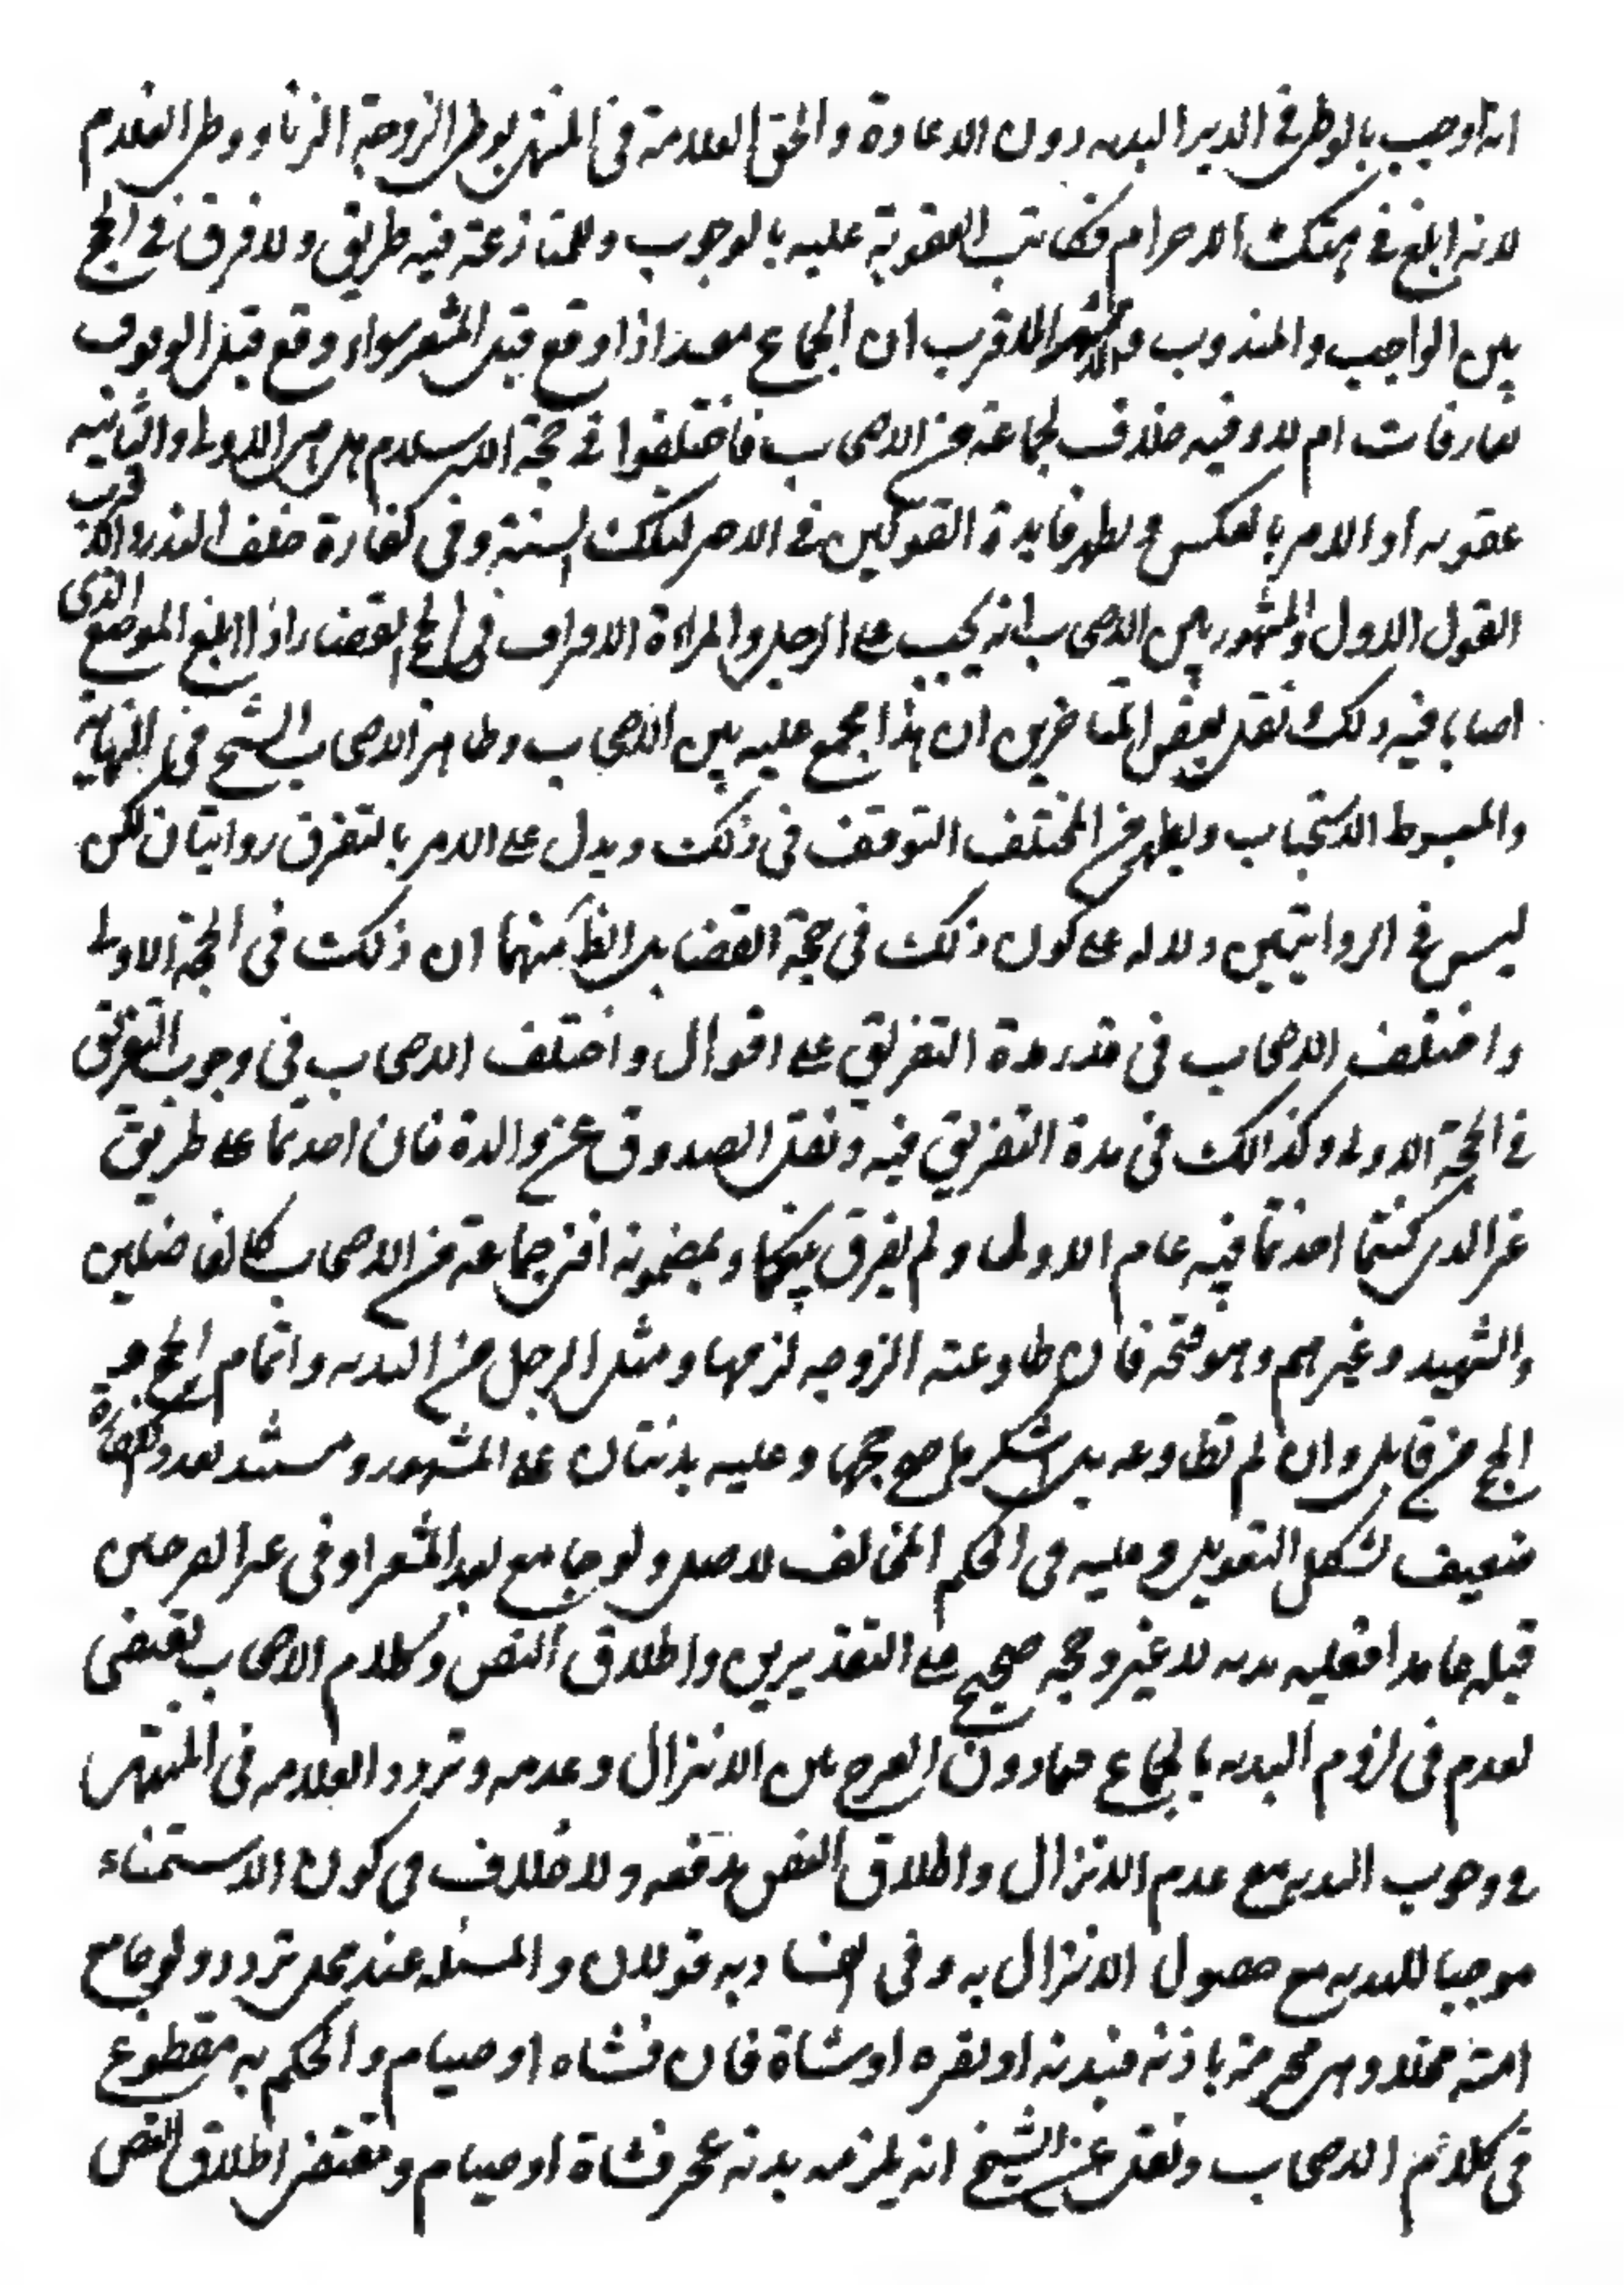 انه اوجب بالوطى في الدبر البدنه دون الاعادة والحق العلامة في المنتهى بوطى الزوجة الزنا ووطى الغلام
لانه ابلغ في هتك الاحرام فكانت العقوبة عليه بالوجوب وللمنازعة فيه طريق ولا فرق في الحج
بين الواجب والمندوب والاشهر الاقرب ان الجماع مفسد اذا وقع قبل المشعر سواء وقع قبل الوقوف
بعارفات ام لا وفيه خلاف لجماعة من الاصحاب فاختلفوا في حجة الاسلام هل هى الاولى والثانيه
عقوبه او الامر بالعكس ويظهر فايدة القولين في الاجير لتلك السنة وفى كفارة خلف النذر والاقرب
القول الاول والمشهور بين الاصحاب انه يجب على الرجل والمراءة الافتراق فى الحج القضاء اذا ابلغ الموضع الذى
اصابا فيه ذلك نقل بعض المتاخرين ان هذا مجمع عليه بين الاصحاب وظاهر الاصحاب الشيخ فى النهاية
والمبسوط الاستحباب ويظهر من المختلف التوقف فى ذلك ويدل على الامر بالتفرق روايتان لكن
ليس في الروايتين دلاله على كون ذلك فى حجة القضا بل الظ منهما ان ذلك فى الحجة الاولى
واختلف الاصحاب فى قدر مدة التفريق على اقوال واختلف الاصحاب فى وجوب التفريق
في الحجة الاولى وكذالك فى مدة التفريق فيه ونقل الصدوق عن والدة فان اخذتما على طريق
غير الذى كنتما اخذتما فيه عام الاولى ولم يفرق بينكما وبمضمونه افتى جماعة من الاصحاب كالفاضلين
والشهيد وغيرهم وهو متجه فان طاوعته الزوجه لزمها ومثل الرجل من البدنه واتمام الحج
الحج من قابل وان لم تطاوعه بل استكرهها صح حجها وعليه بدنتان على المشهور ومستند تعدد الكفارة
ضعيف لشكل التعويل عليه فى الحكم المخالف للاصل ولو جامع بعد المشعر او فى غير الفرجين
قبله عامدا فعليه بدنه لا غير وحجه صحيح على التقديرين واطلاق النص وكلام الاصحاب يقتضى
لعدم فى لزوم البدنه بالجماع فيما دون الفرج بين الانزال وعدمه وتردد العلامه فى المنتهى
في وجوب البدنه مع عدم الانزال واطلاق النص يدفعه ولا خلاف فى كون الاستمناء
موجبا للبدنه مع حصول الانزال به وفى افساده به قولان والمسئله عند محل تردد ولو جامع
امته محلا وهى محرمة باذنه فبدنه او بقره او شاة فان فشاه او صيام والحكم به مقطوع
فى كلام الاصحاب ونقل عن الشيخ انه يلزمه بدنه عجز فشاة او صيام ومقتضى اطلاق النص